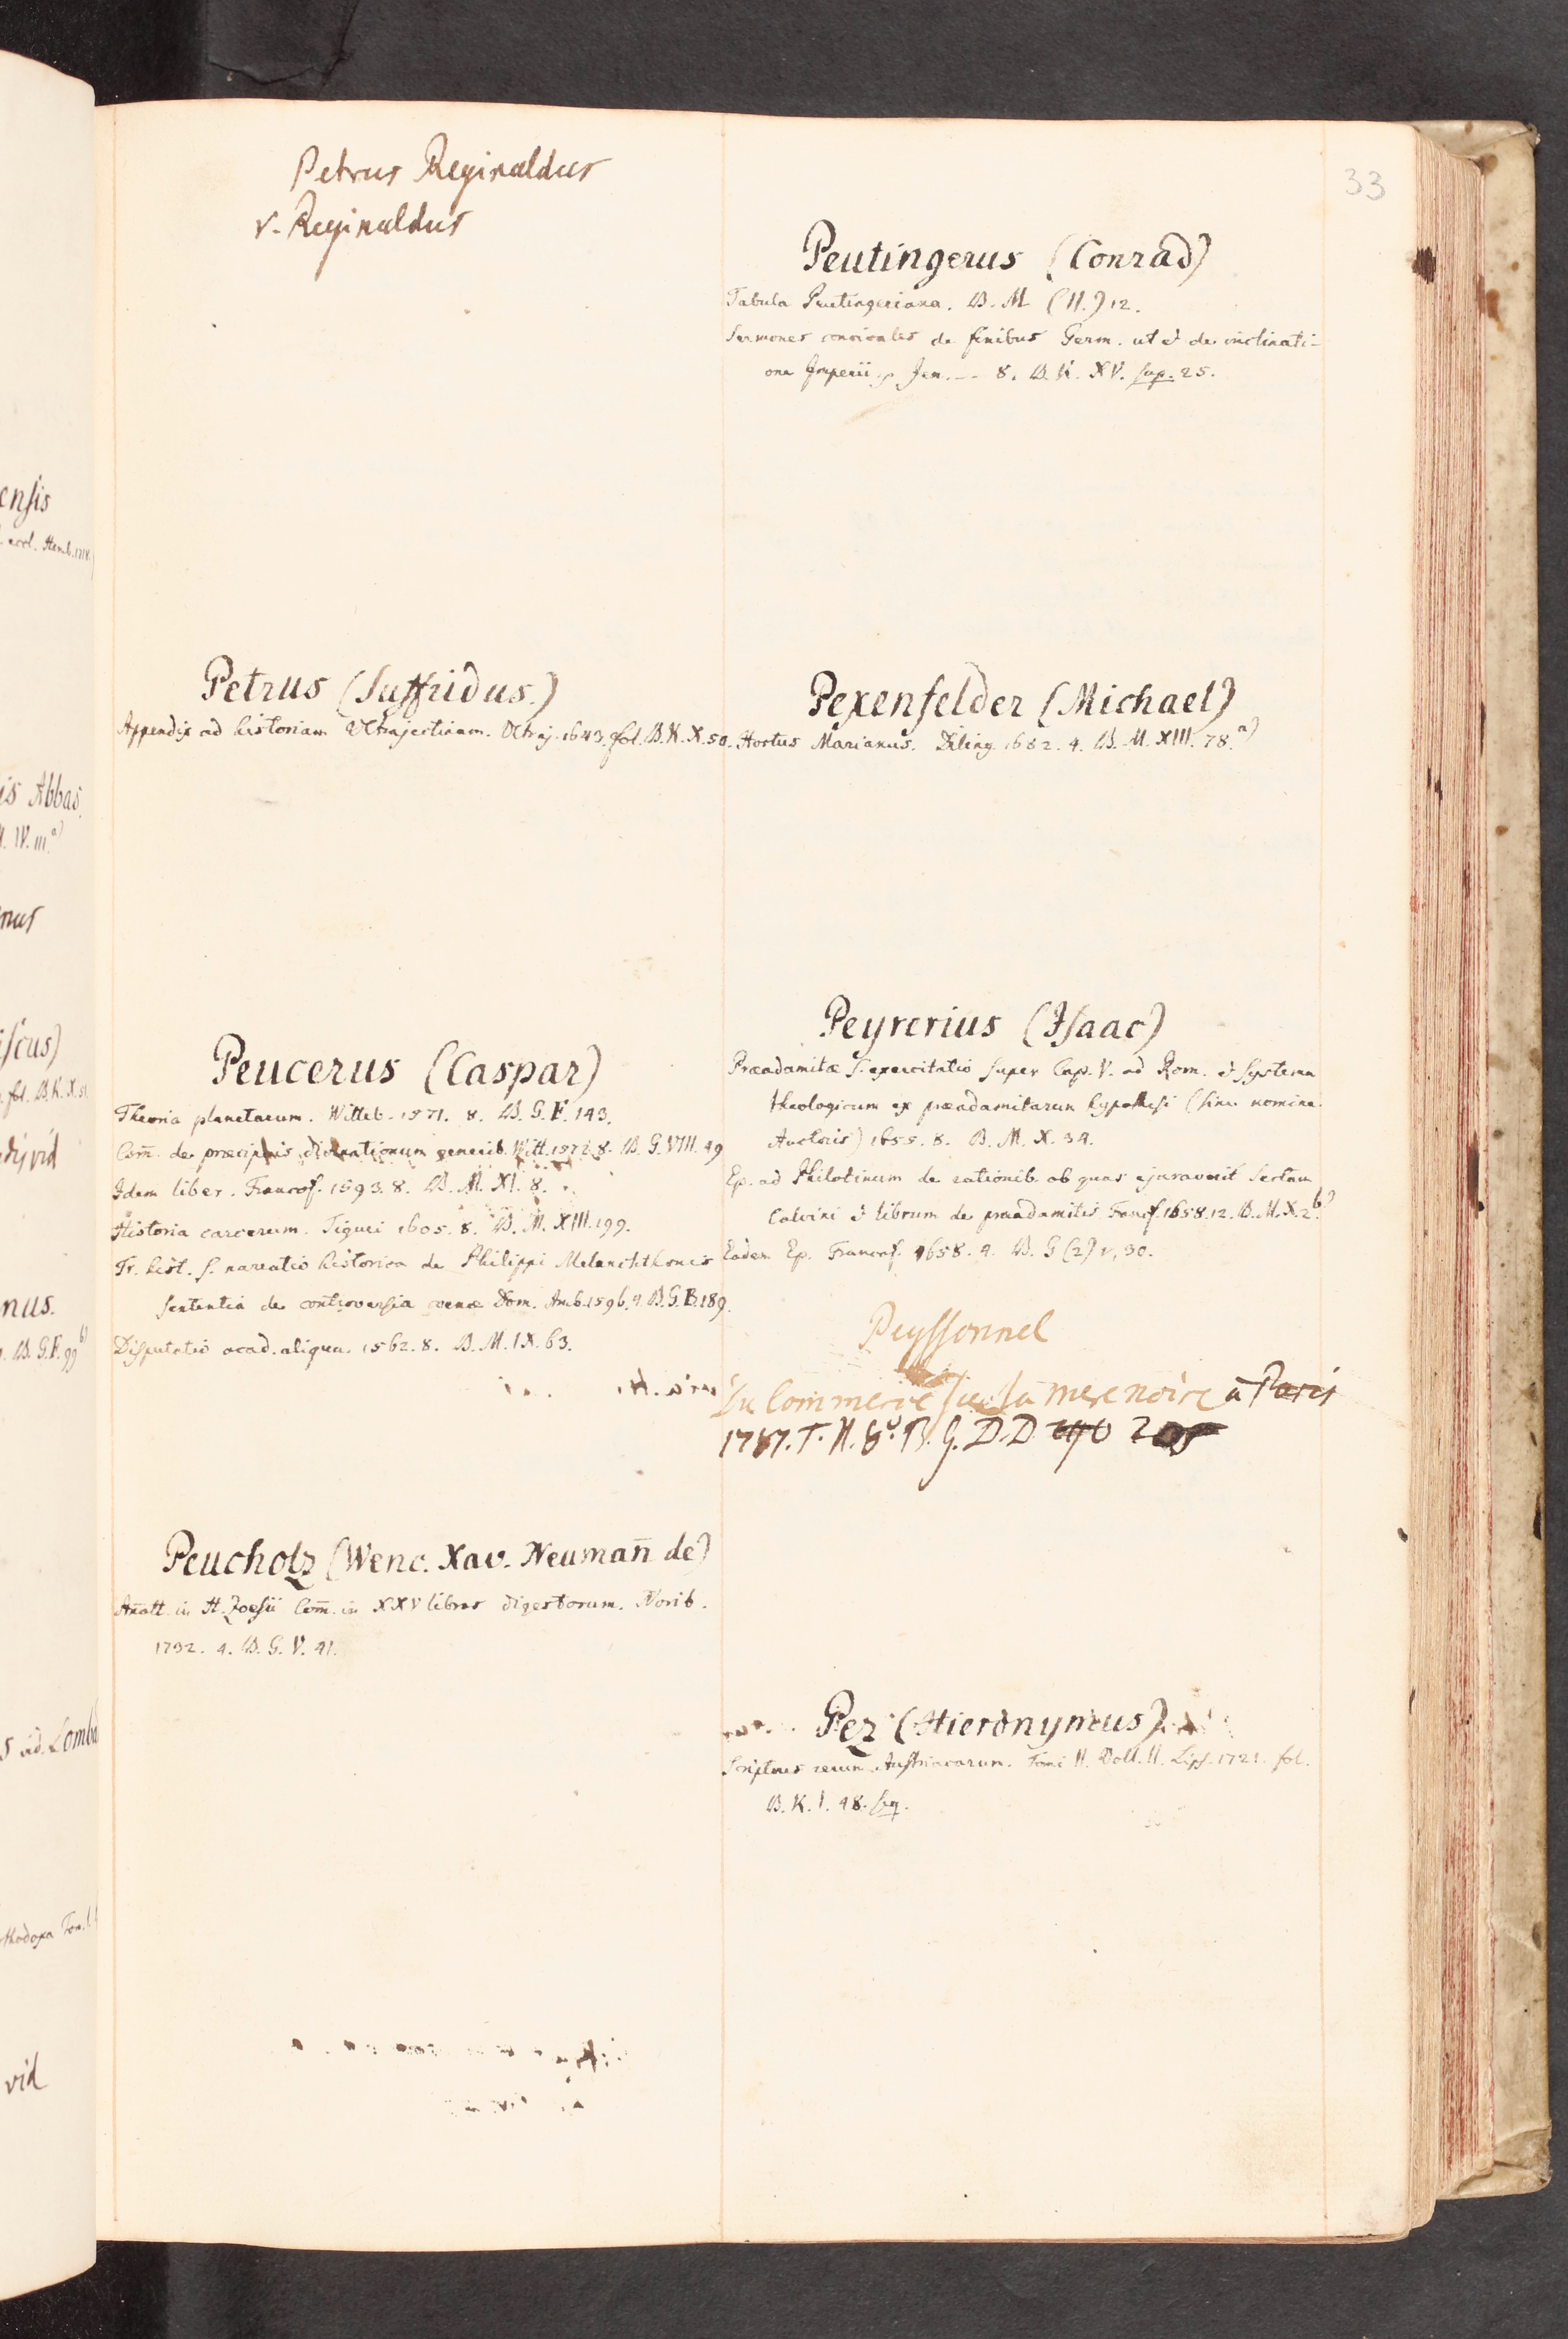 33
Petrus Reginaldus
v. Reginaldus
Petrus (Suffridus.)
Appendix ad historiam Ultrajectinam. Ultraj. 1643. fol. B. K. X. 50.
Peucerus (Caspar)
Theoria planetarum. Witteb. 1571. 8. B. G. F. 143.
Com̄. de præcipuis divinationum generib. Witt. 1572. 8. B. G. VIII. 49
Idem liber. Francof. 1593. 8. B. M. XI. 8.
Historia carcerum. Tiguri 1605. 8. B. M. XIII. 199.
Tr. hist. s. narratio historica de Philippi Melanchthonis
sententia de controversia coenæ Dom. Amb. 1596. 4. B. G. B. 189.
Disputatio acad. aliqua. 1562. 8. B. M. IX. 63.
Peucholz (Wenc. Xav. Neuman̄ de)
An̄ott. in H. Zoesii Com̄. in XXV libros digestorum. Norib.
1732. 4. B. G. V. 41.
Peutingerus (Conrad)
Tabula Peutingeriana. B. M (II.) 12.
Sermones convivales de finibus Germ. ut et de inclinati-
one Imperii. Jen. -- 8. B. K. XV. sup. 25.
Pexenfelder (Michael)
Hortus Marianus. Diling. 1682. 4. B. M. XIII. 78. a)
Peyrerius (Isaac)
Præadamitæ s. exercitatio super Cap. V. ad Rom. et Systema
theologicum ex præadamitarum hypothesi (sine nomine
Auctoris) 1655. 8. B. M. X. 34.
Ep. ad Philotimum de rationib. ob quas ejuraverit sectam
Calvini et librum de præadamitis Francf. 1658. 12. B. M. X. 2. b)
Eadem Ep. Francof. 1658. 4. B. G (2) V, 30.
Peyssonnel
Du Commerce sur la mere noire a Paris
1787. T. II. 8º. B. G. D. D
Pez (Hieronymus)
Scriptores rerum Austriacarum. Tomi II. Voll. II. Lips. 1721. fol.
B. K. I. 48. sq.